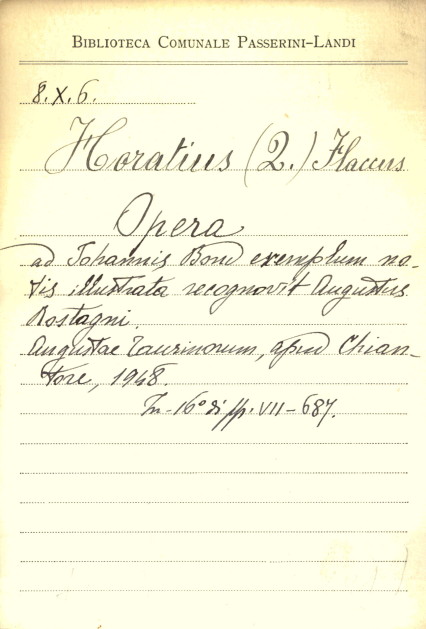 BIBLIOTECA COMUNALE PASSERINI-LANDI
8.X.6.
Horatius (Q.) Flaccus
Opera
ad Johannis Bond exemplum no-
tis illustrata recognovit Augustus
Rostagni.
Augustae Taurinorum, apud Chian-
tore, 1948.
In-16° di pp. VII-687.